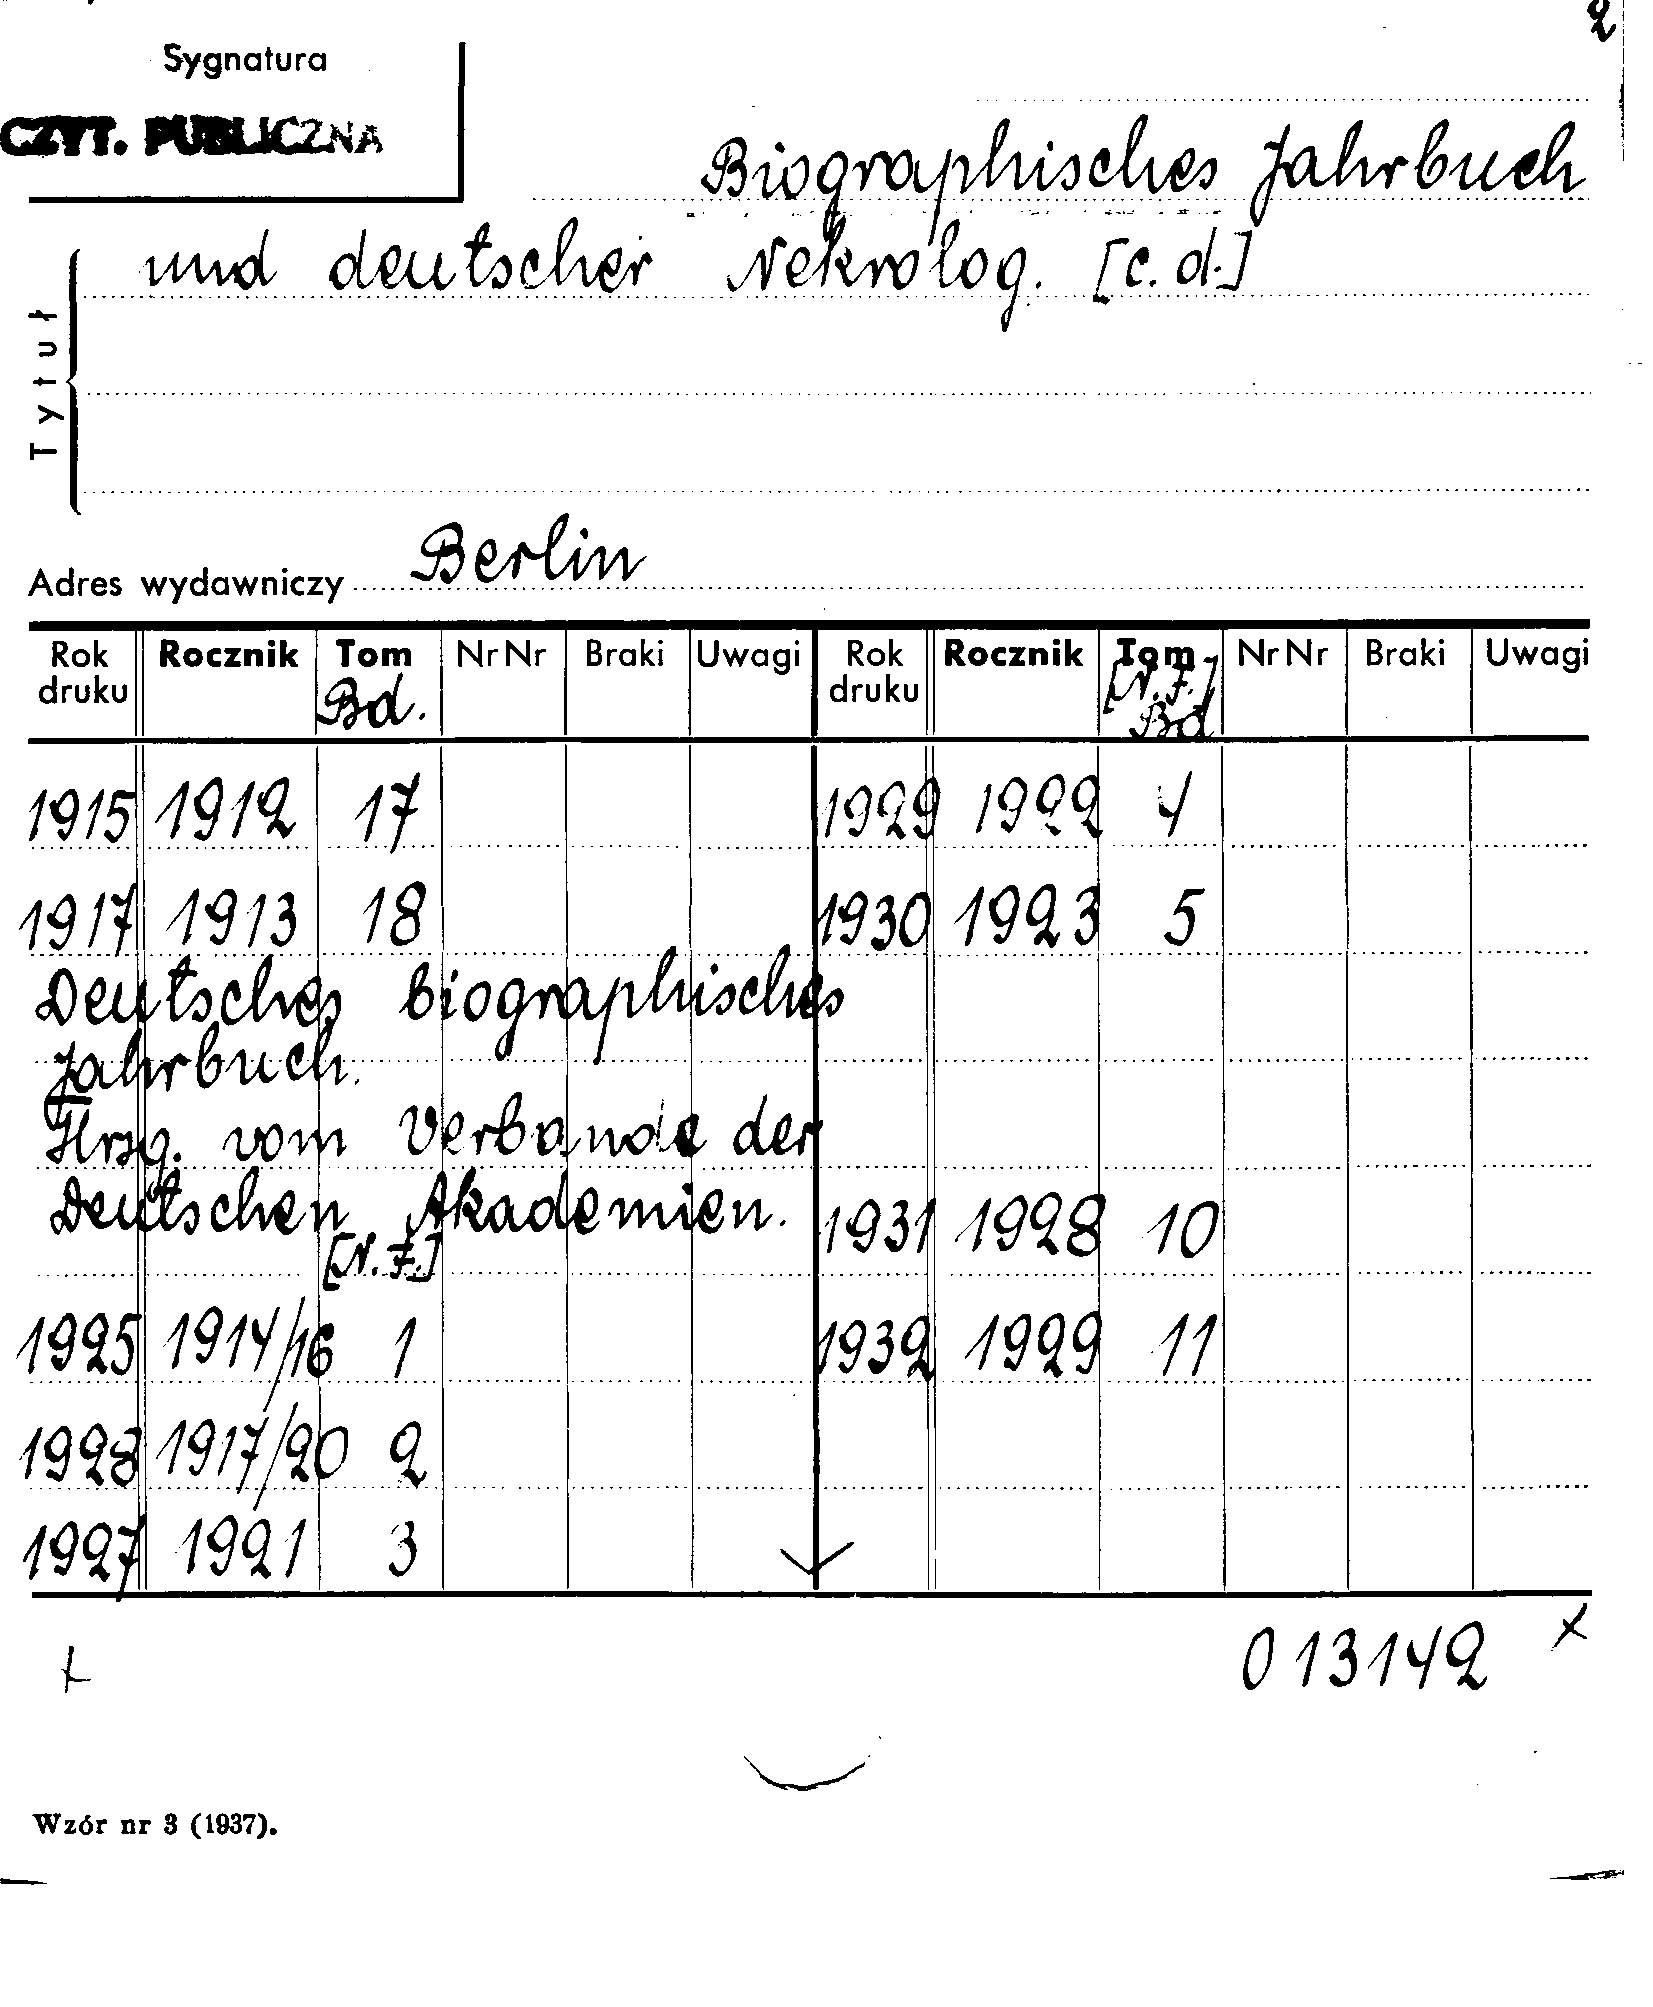 2
Sygnatura
CZYT. PUBLICZNA
Biographisches Jahrbuch
und deutscher Nekrolog. [c.d.]
Tytuł
Adres wydawniczy Berlin
Rok druku Rocznik Tom Bd. Nr Nr Braki Uwagi Rok druku Rocznik Tom [N.F.] Bd Nr Nr Braki Uwagi
1915 1912 17 1929 1922 4
1917 1913 18 1930 1923 5
Deutsches biographisches
Jahrbuch.
Hrsg. vom Verbande der
Deutschen Akademien. 1931 1928 10
[N.F.]
1925 1914/16 1 1932 1929 11
1928 1917/20 2
1927 1921 3
013142
Wzór nr 3 (1937).